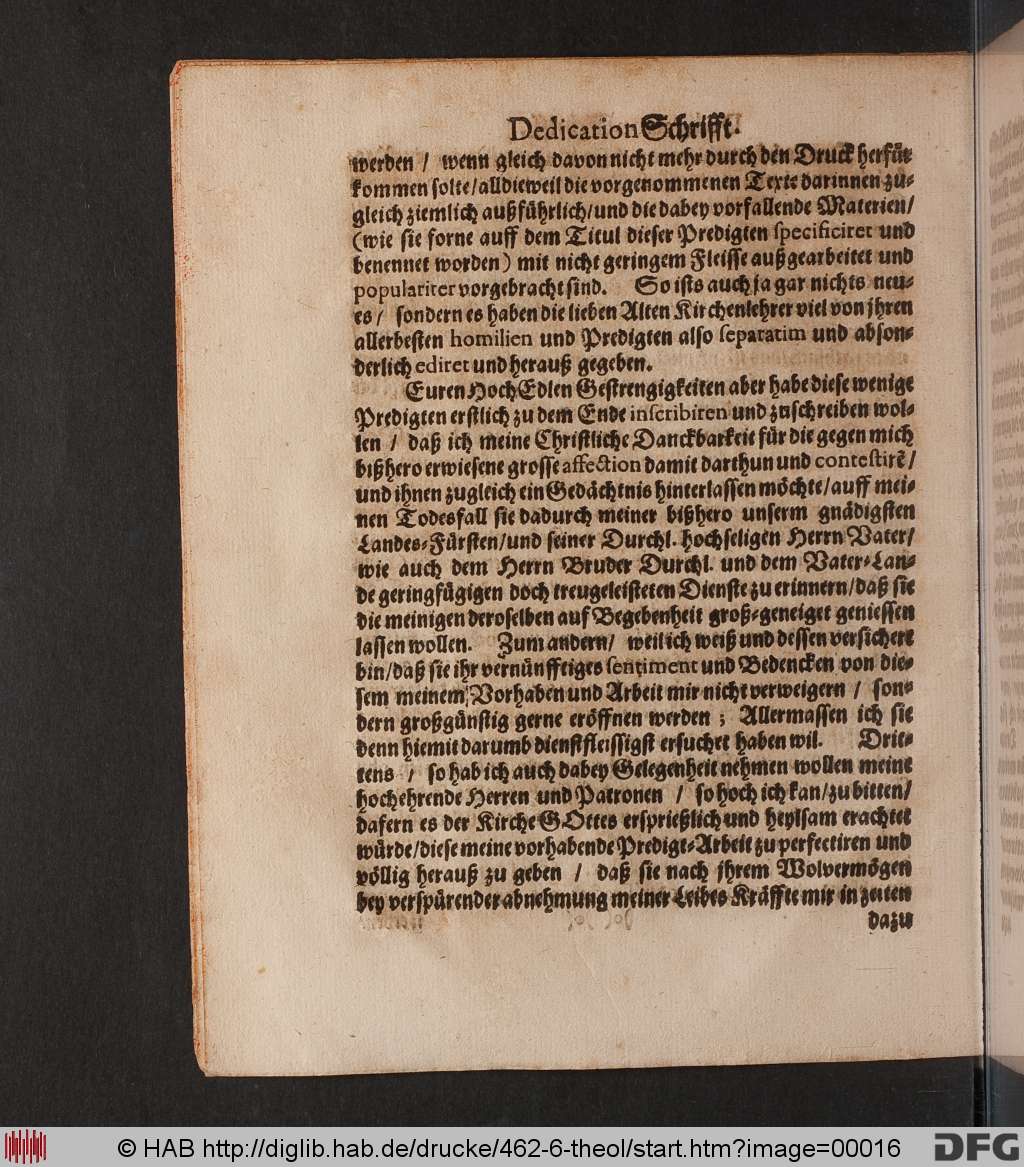 Dedication Schrifft.
werden / wenn gleich davon nicht mehr durch den Druck herfür
kommen solte/alldieweil die vorgenommenen Texte darinnen zu-
gleich ziemlich außführlich/und die dabey vorfallende Materien/
(wie sie forne auff dem Titul dieser Predigten specificiret und
benennet worden) mit nicht geringem Fleisse außgearbeitet und
populariter vorgebracht sind. So ists auch ja gar nichts neu-
es / sondern es haben die lieben Alten Kirchenlehrer viel von jhren
allerbesten homilien und Predigten also separatim und abson-
derlich ediret und herauß gegeben.
Euren HochEdlen Gestrengigkeiten aber habe diese wenige
Predigten erstlich zu dem Ende inscribiren und zuschreiben wol-
len / daß ich meine Christliche Danckbarkeit für die gegen mich
bißhero erwiesene grosse affection damit darthun und contestirē /
und ihnen zugleich ein Gedächtnis hinterlassen möchte/auff mei-
nen Todesfall sie dadurch meiner bißhero unserm gnädigsten
Landes-Fürsten/und seiner Durchl. hochseligen Herrn Vater/
wie auch dem Herrn Bruder Durchl. und dem Vater-Lan-
de geringfügigen doch treugeleisteten Dienste zu erinnern/daß sie
die meinigen deroselben auf Begebenheit groß-geneiget geniessen
lassen wollen. Zum andern / weil ich weiß und dessen versichert
bin/daß sie ihr vernünfftiges sentiment und Bedencken von die-
sem meinem Vorhaben und Arbeit mir nicht verweigern / son-
dern großgünstig gerne eröffnen werden ; Allermassen ich sie
denn hiemit darumb dienstfleissigst ersuchet haben wil. Drit-
tens / so hab ich auch dabey Gelegenheit nehmen wollen meine
hochehrende Herren und Patronen / so hoch ich kan/zu bitten/
dafern es der Kirche GOttes ersprießlich und heylsam erachtet
würde/diese meine vorhabende Predigt-Arbeit zu perfectiren und
völlig herauß zu geben / daß sie nach jhrem Wolvermögen
bey verspürender abnehmung meiner Leibes Kräffte mir in zeiten
dazu
© HAB http://diglib.hab.de/drucke/462-6-theol/start.htm?image=00016
DFG